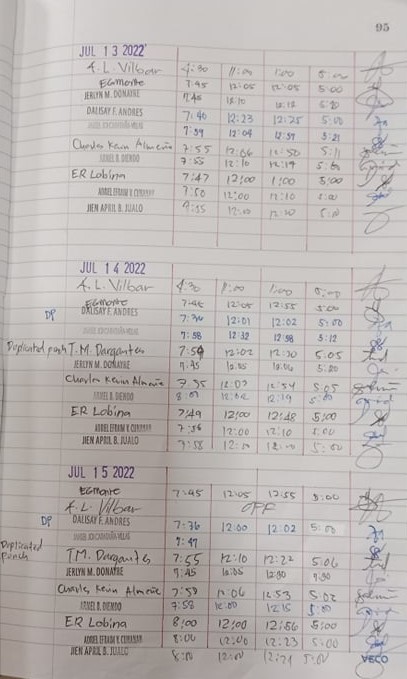 95
JUL 13 2022
A.L. Vilbar 4:30 11:00 1:00 5:00
EGmonte 7:45 12:05 12:05 5:00
JERLYN M. DONAYRE 7:45 12:10 12:12 5:20
DALISAY F. ANDRES 7:40 12:23 12:25 5:00
7:59 12:04 12:57 5:21
Charles Kevin Almeña 7:55 12:06 12:50 5:11
ARNEL B. DIENDO 7:55 12:10 12:19 5:00
ER Lobina 7:47 12:00 1:00 5:00
ADRIEL EFRAIM V. CUMANAN 7:50 12:00 12:10 5:00
JIEN APRIL B. JUALO 7:55 12:00 12:20 5:00
JUL 14 2022
A.L. Vilbar 4:30 11:00 1:00 5:00
EGmonte 7:45 12:05 12:55 5:00
DP DALISAY F. ANDRES 7:36 12:01 12:02 5:00
7:58 12:32 12:58 5:12
Duplicated punch T.M. Dargantes 7:59 12:02 12:30 5:05
JERLYN M. DONAYRE 7:45 12:05 12:06 5:20
Charles Kevin Almeña 7:55 12:03 12:54 5:05
ARNEL B. DIENDO 8:01 12:02 12:19 5:00
ER Lobina 7:49 12:00 12:48 5:00
ADRIEL EFRAIM V. CUMANAN 7:56 12:00 12:10 5:00
JIEN APRIL B. JUALO 7:58 5:00
JUL 15 2022
EGmonte 7:45 12:05 12:55 5:00
A.L. Vilbar OFF
DP DALISAY F. ANDRES 7:36 12:00 12:02 5:00
7:47
Duplicated punch T.M. Dargantes 7:55 12:10 12:22 5:06
JERLYN M. DONAYRE 7:45 12:05 12:30
Charles Kevin Almeña 7:57 12:06 12:53 5:02
ARNEL B. DIENDO 7:58 12:00 12:15 5:00
ER Lobina 8:00 12:00 12:56 5:00
ADRIEL EFRAIM V. CUMANAN 8:00 12:00 12:23 5:00
JIEN APRIL B. JUALO 8:00 12:00 12:21 5:00
VECO